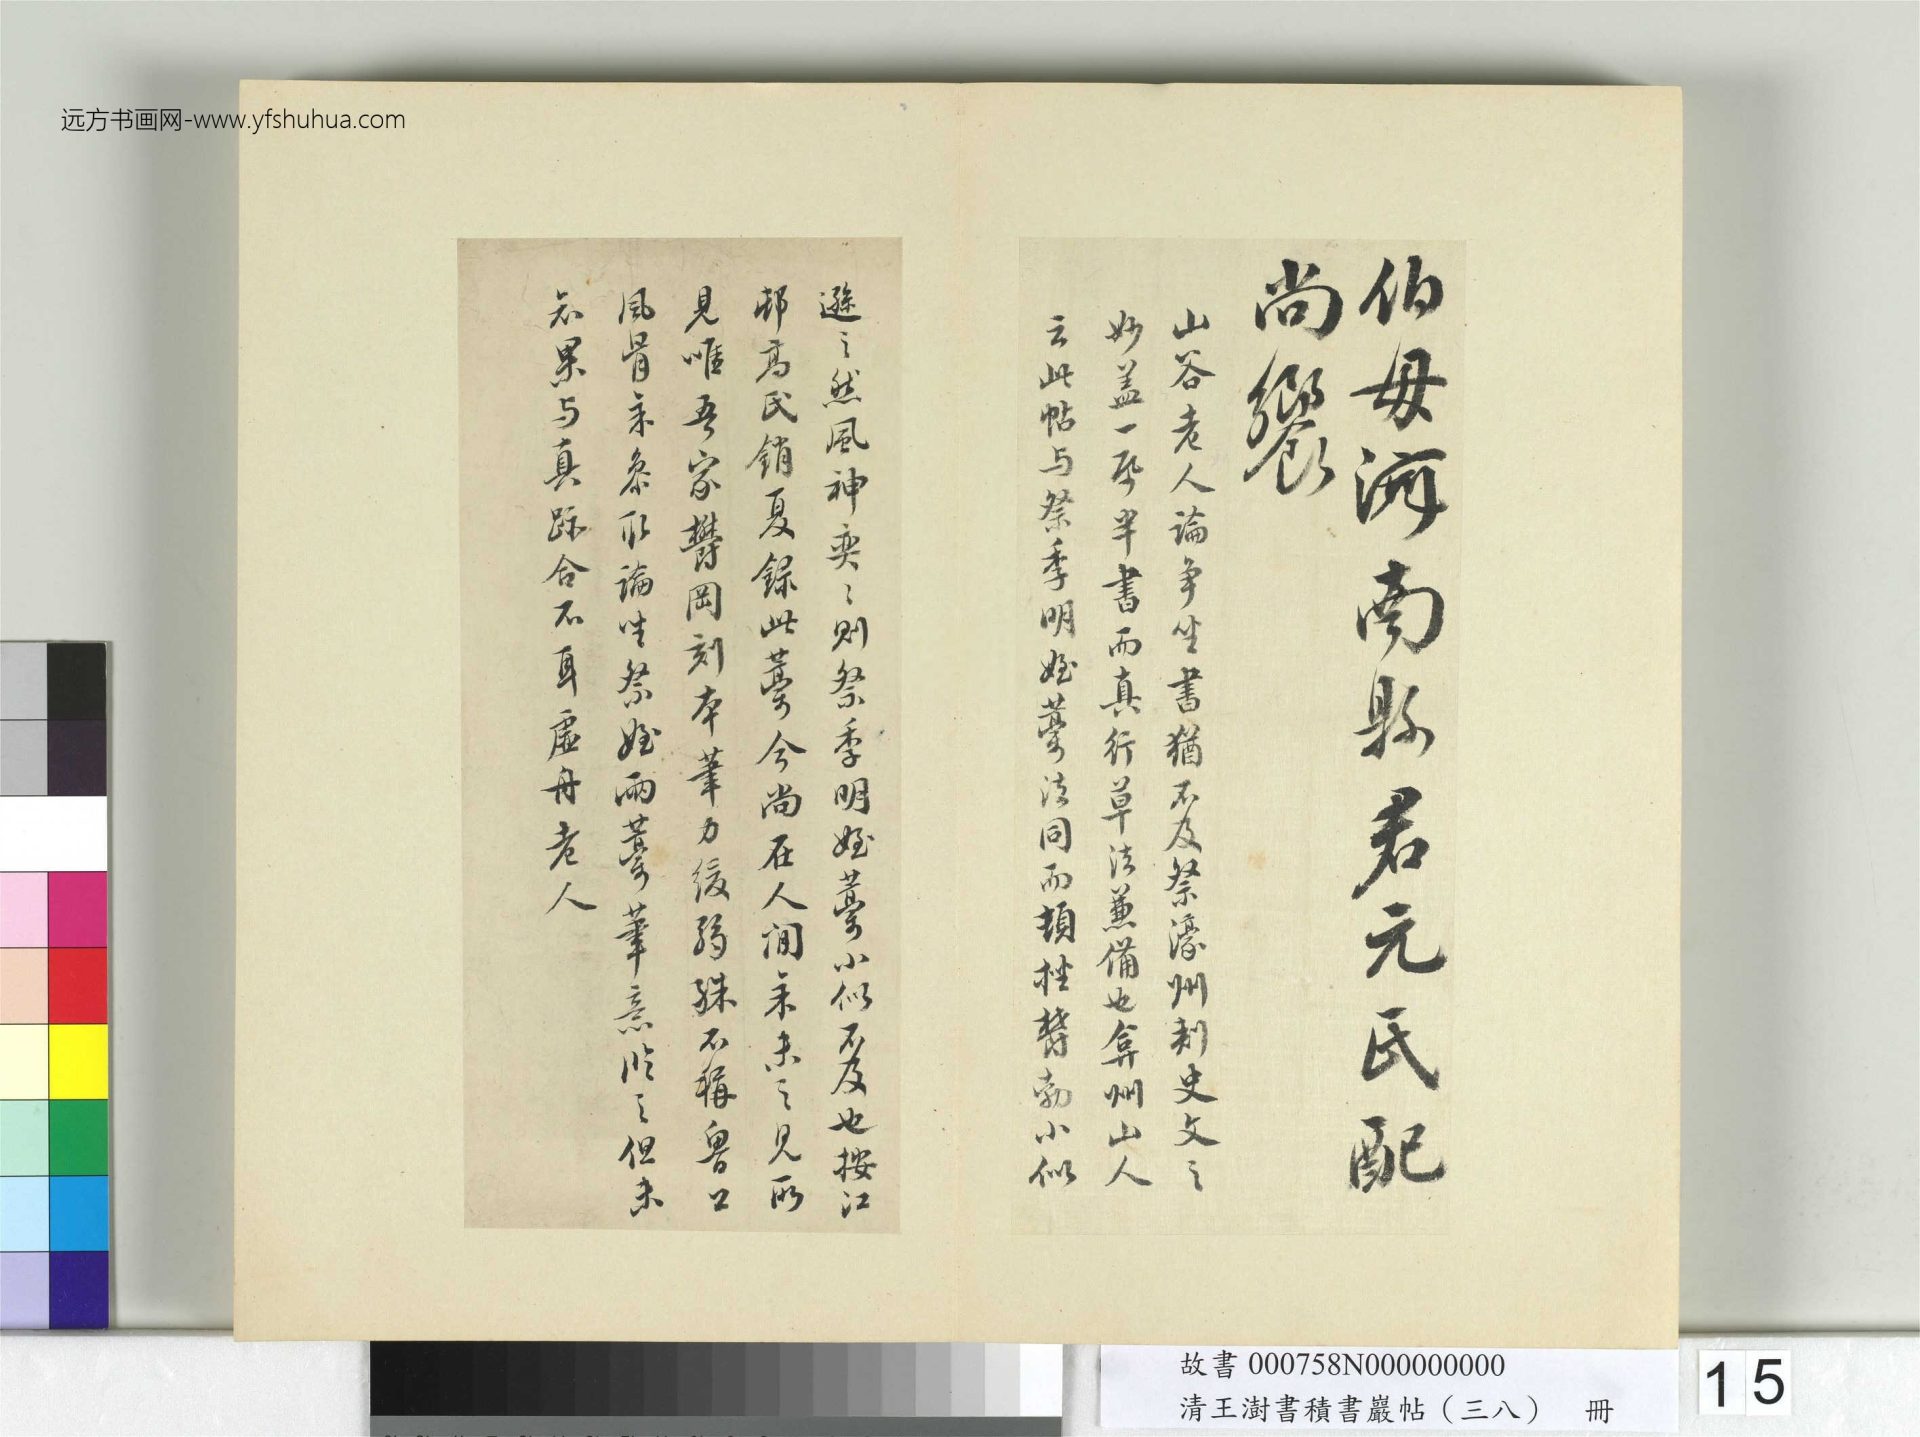 远方书画网-www.yfshuhua.com
伯母河南縣君元氏配
尚饗
山谷老人論争坐書猶不及祭濠州刺史文之
妙蓋一紙半書而真行草法兼備也弇州山人
云此帖与祭季明姪藁法同而頓挫鬱勃小似
遜之然風神奕〻則祭季明姪藁小似不及也按江
邨高氏銷夏録此藁今尚在人间余未之見所
見唯吾家鬱岡刻本筆力緩弱殊不稱魯公
風骨余条取論坐祭姪兩藁筆意臨之但未
知果与真跡合不耳虛舟老人
故書 000758N000000000
清王澍書積書巖帖（三八） 冊
15